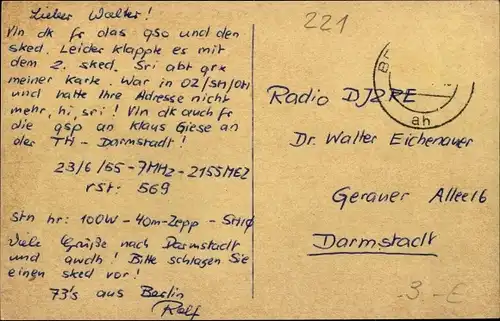 Lieber Walter!
Vln dk fr das qso und den
sked. Leider klappte es mit
dem 2. sked. Sri abt qrx
meiner Karte. War in OZ/SM/OH
und hatte Ihre Adresse nicht
mehr, hi, sri! Vln dk auch fr
die qsp an Klaus Giese an
der TH - Darmstadt!
23/6/55 - 7MHz - 2155 MEZ
rst: 569
stn hr: 100W - 40m-Zepp -
Viele Grüße nach Darmstadt
und awdh! Bitte schlagen Sie
einen sked vor!
73's aus Berlin
Rolf
221
Radio DJ2RE
Dr. Walter Eichenauer
Gerauer Allee 16
Darmstadt
Br
ah
-3-€